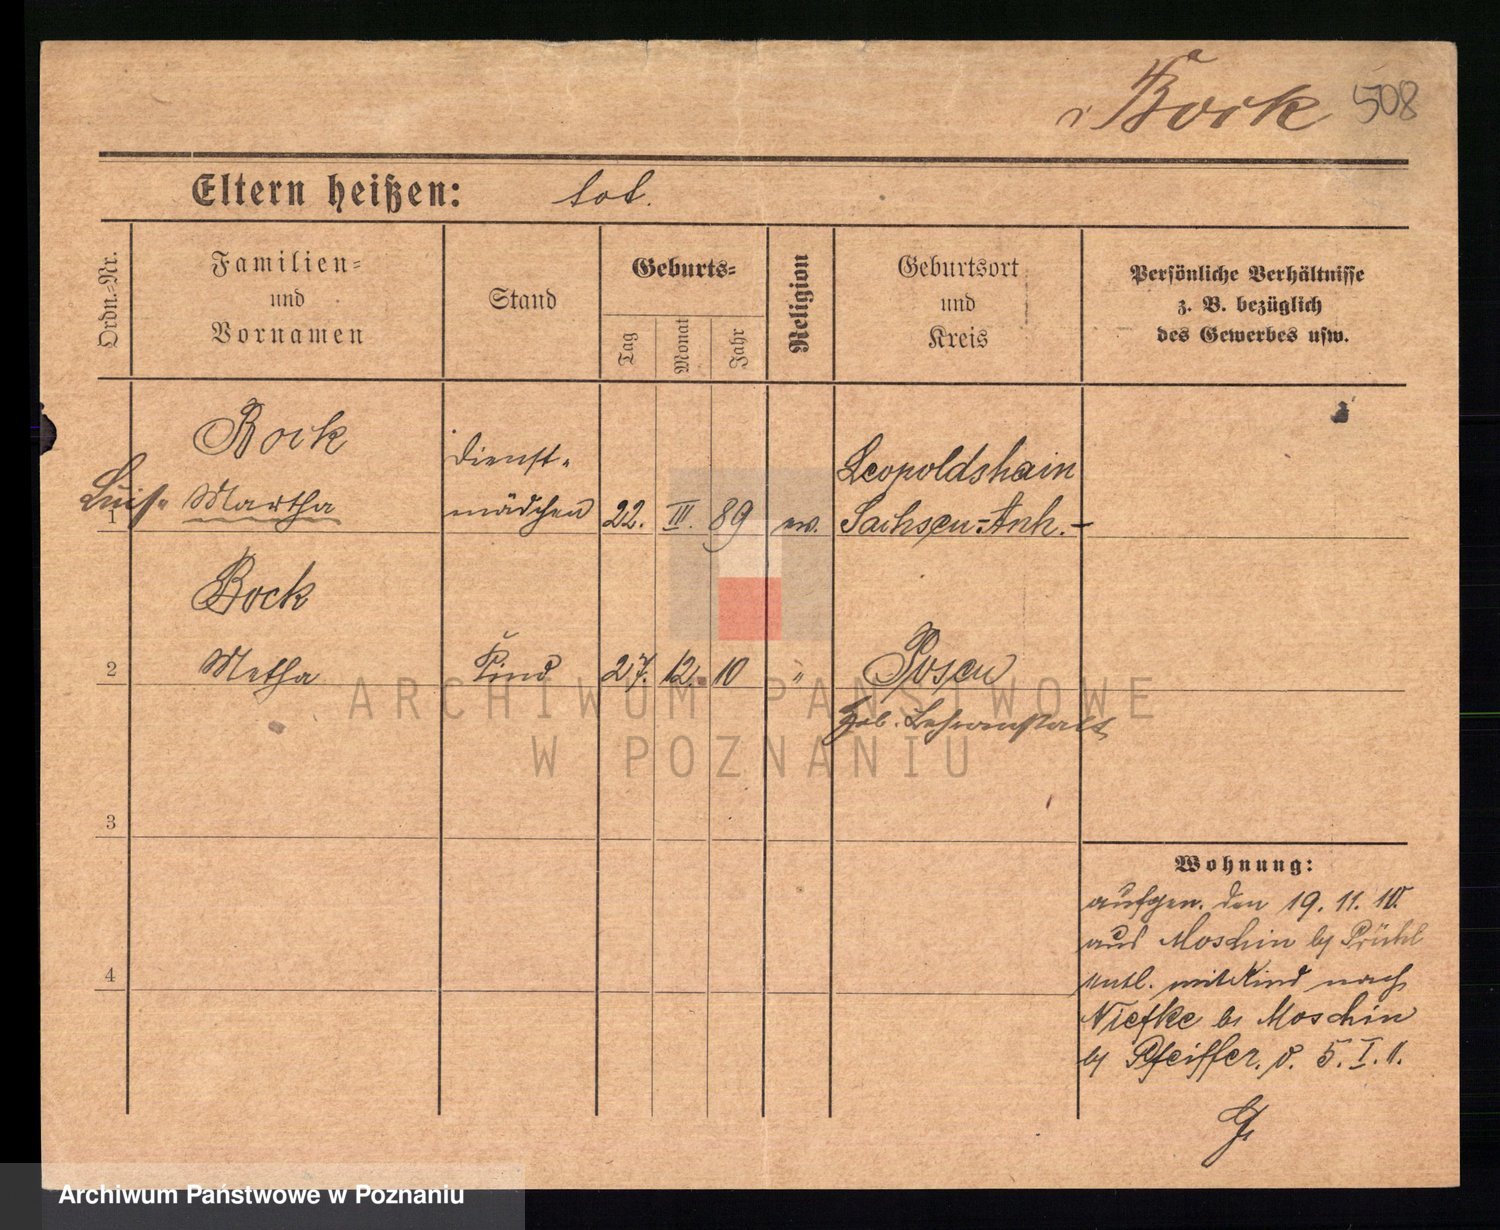 Bock 508
Eltern heißen: tot.
Ordn.-Nr.
Familien-
und
Vornamen
Stand
Geburts-
Tag
Monat
Jahr
Religion
Geburtsort
und
Kreis
Persönliche Verhältnisse
z. B. bezüglich
des Gewerbes usw.
1
Bock
Luise Martha
Dienst-
mädchen
22. III. 89
ev.
Leopoldshain
Sachsen-Anh.-
2
Bock
Metha
Kind
27. 12. 10
"
Posen
Heb. Lehranstalt
3
4
Wohnung:
aufgen. den 19. 11. 10.
aus Moschin by
entl. mit Kind nach
Nietke b. Moschin
by Pfeiffer. d. 5. I. 11.
ARCHIWUM PAŃSTWOWE
W POZNANIU
Archiwum Państwowe w Poznaniu